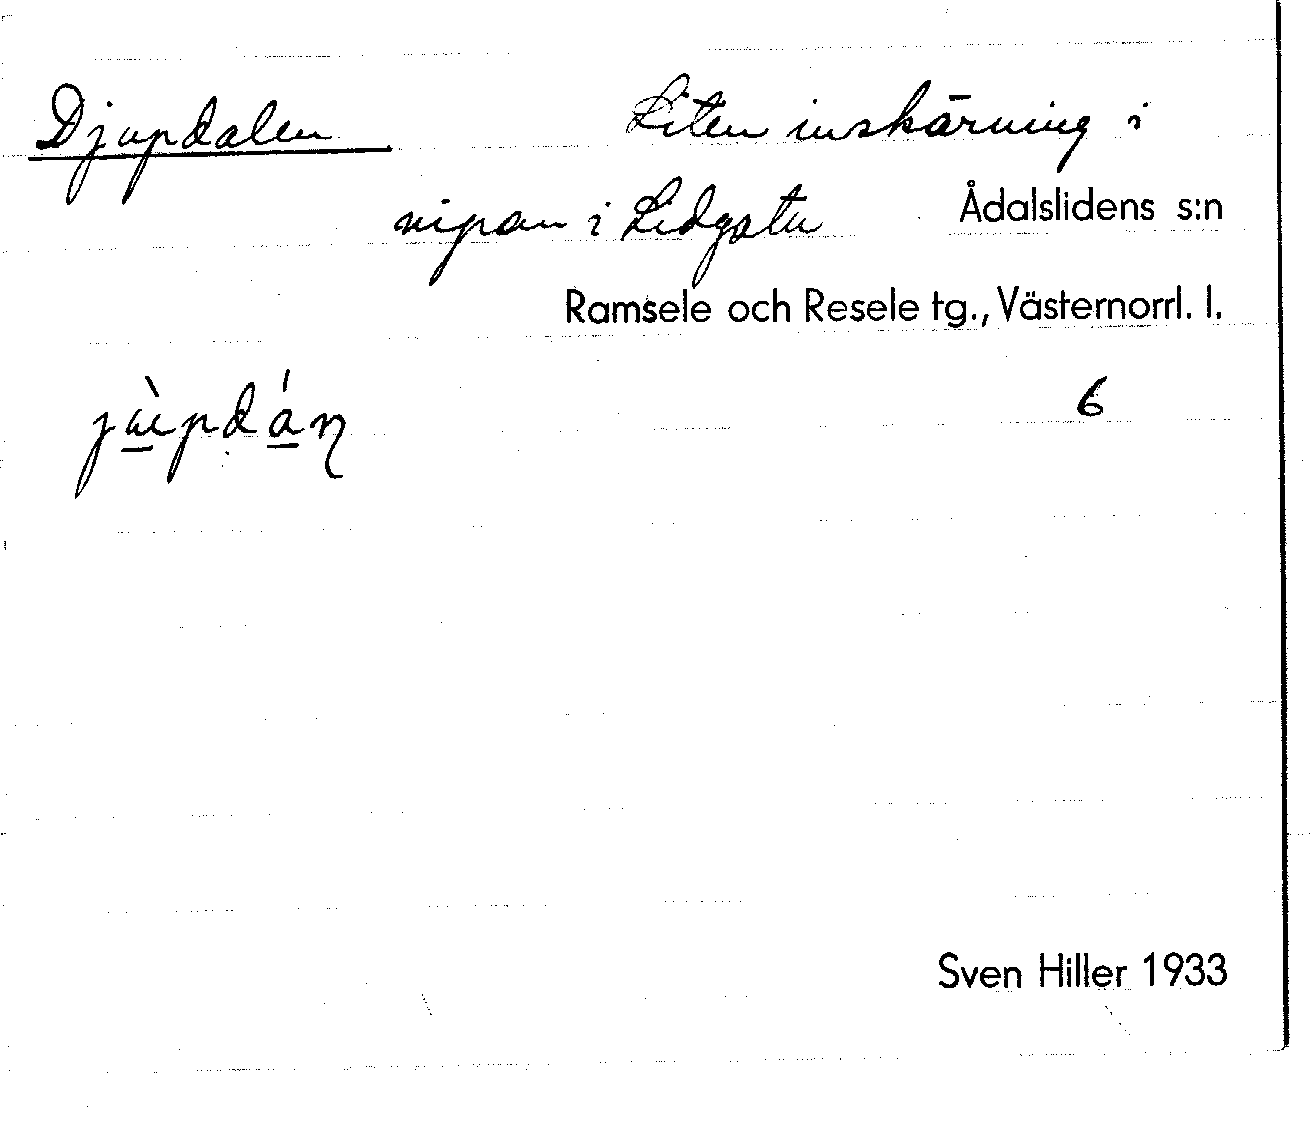 Djupdalen Liten inskärning i
nipan i Lidgatu Ådalslidens s:n
Ramsele och Resele tg., Västernorrl. l.
6
Sven Hiller 1933